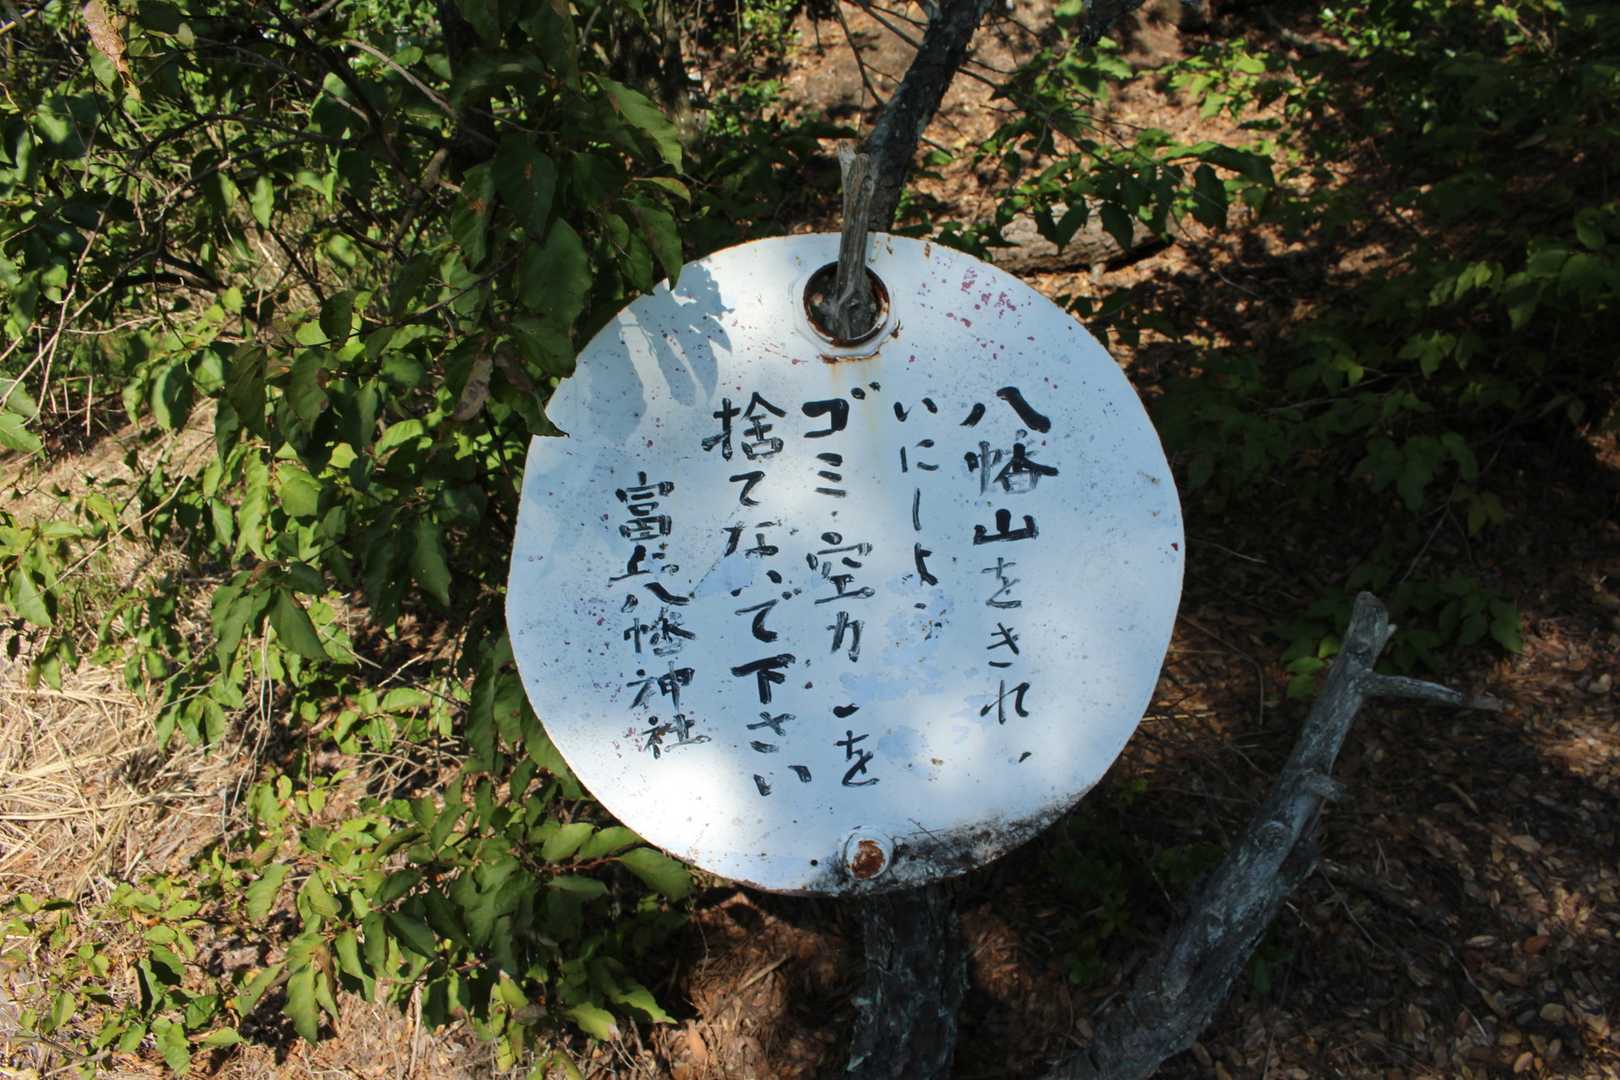 八幡山をきれ、
いにしよう
ゴミ・空カンを
捨てないで下さい
富丘八幡神社